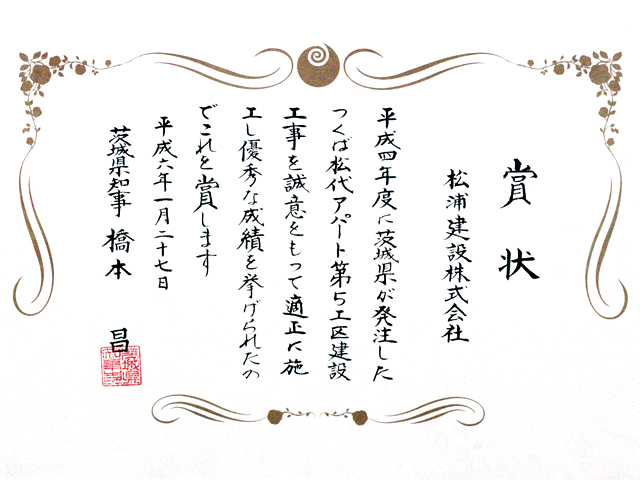 賞状
松浦建設株式会社
平成四年度に茨城県が発注した
つくば松代アパート第5工区建設
工事を誠意をもって適正に施
工し優秀な成績を挙げられたの
でこれを賞します
平成六年一月二十七日
茨城県知事 橋本 昌